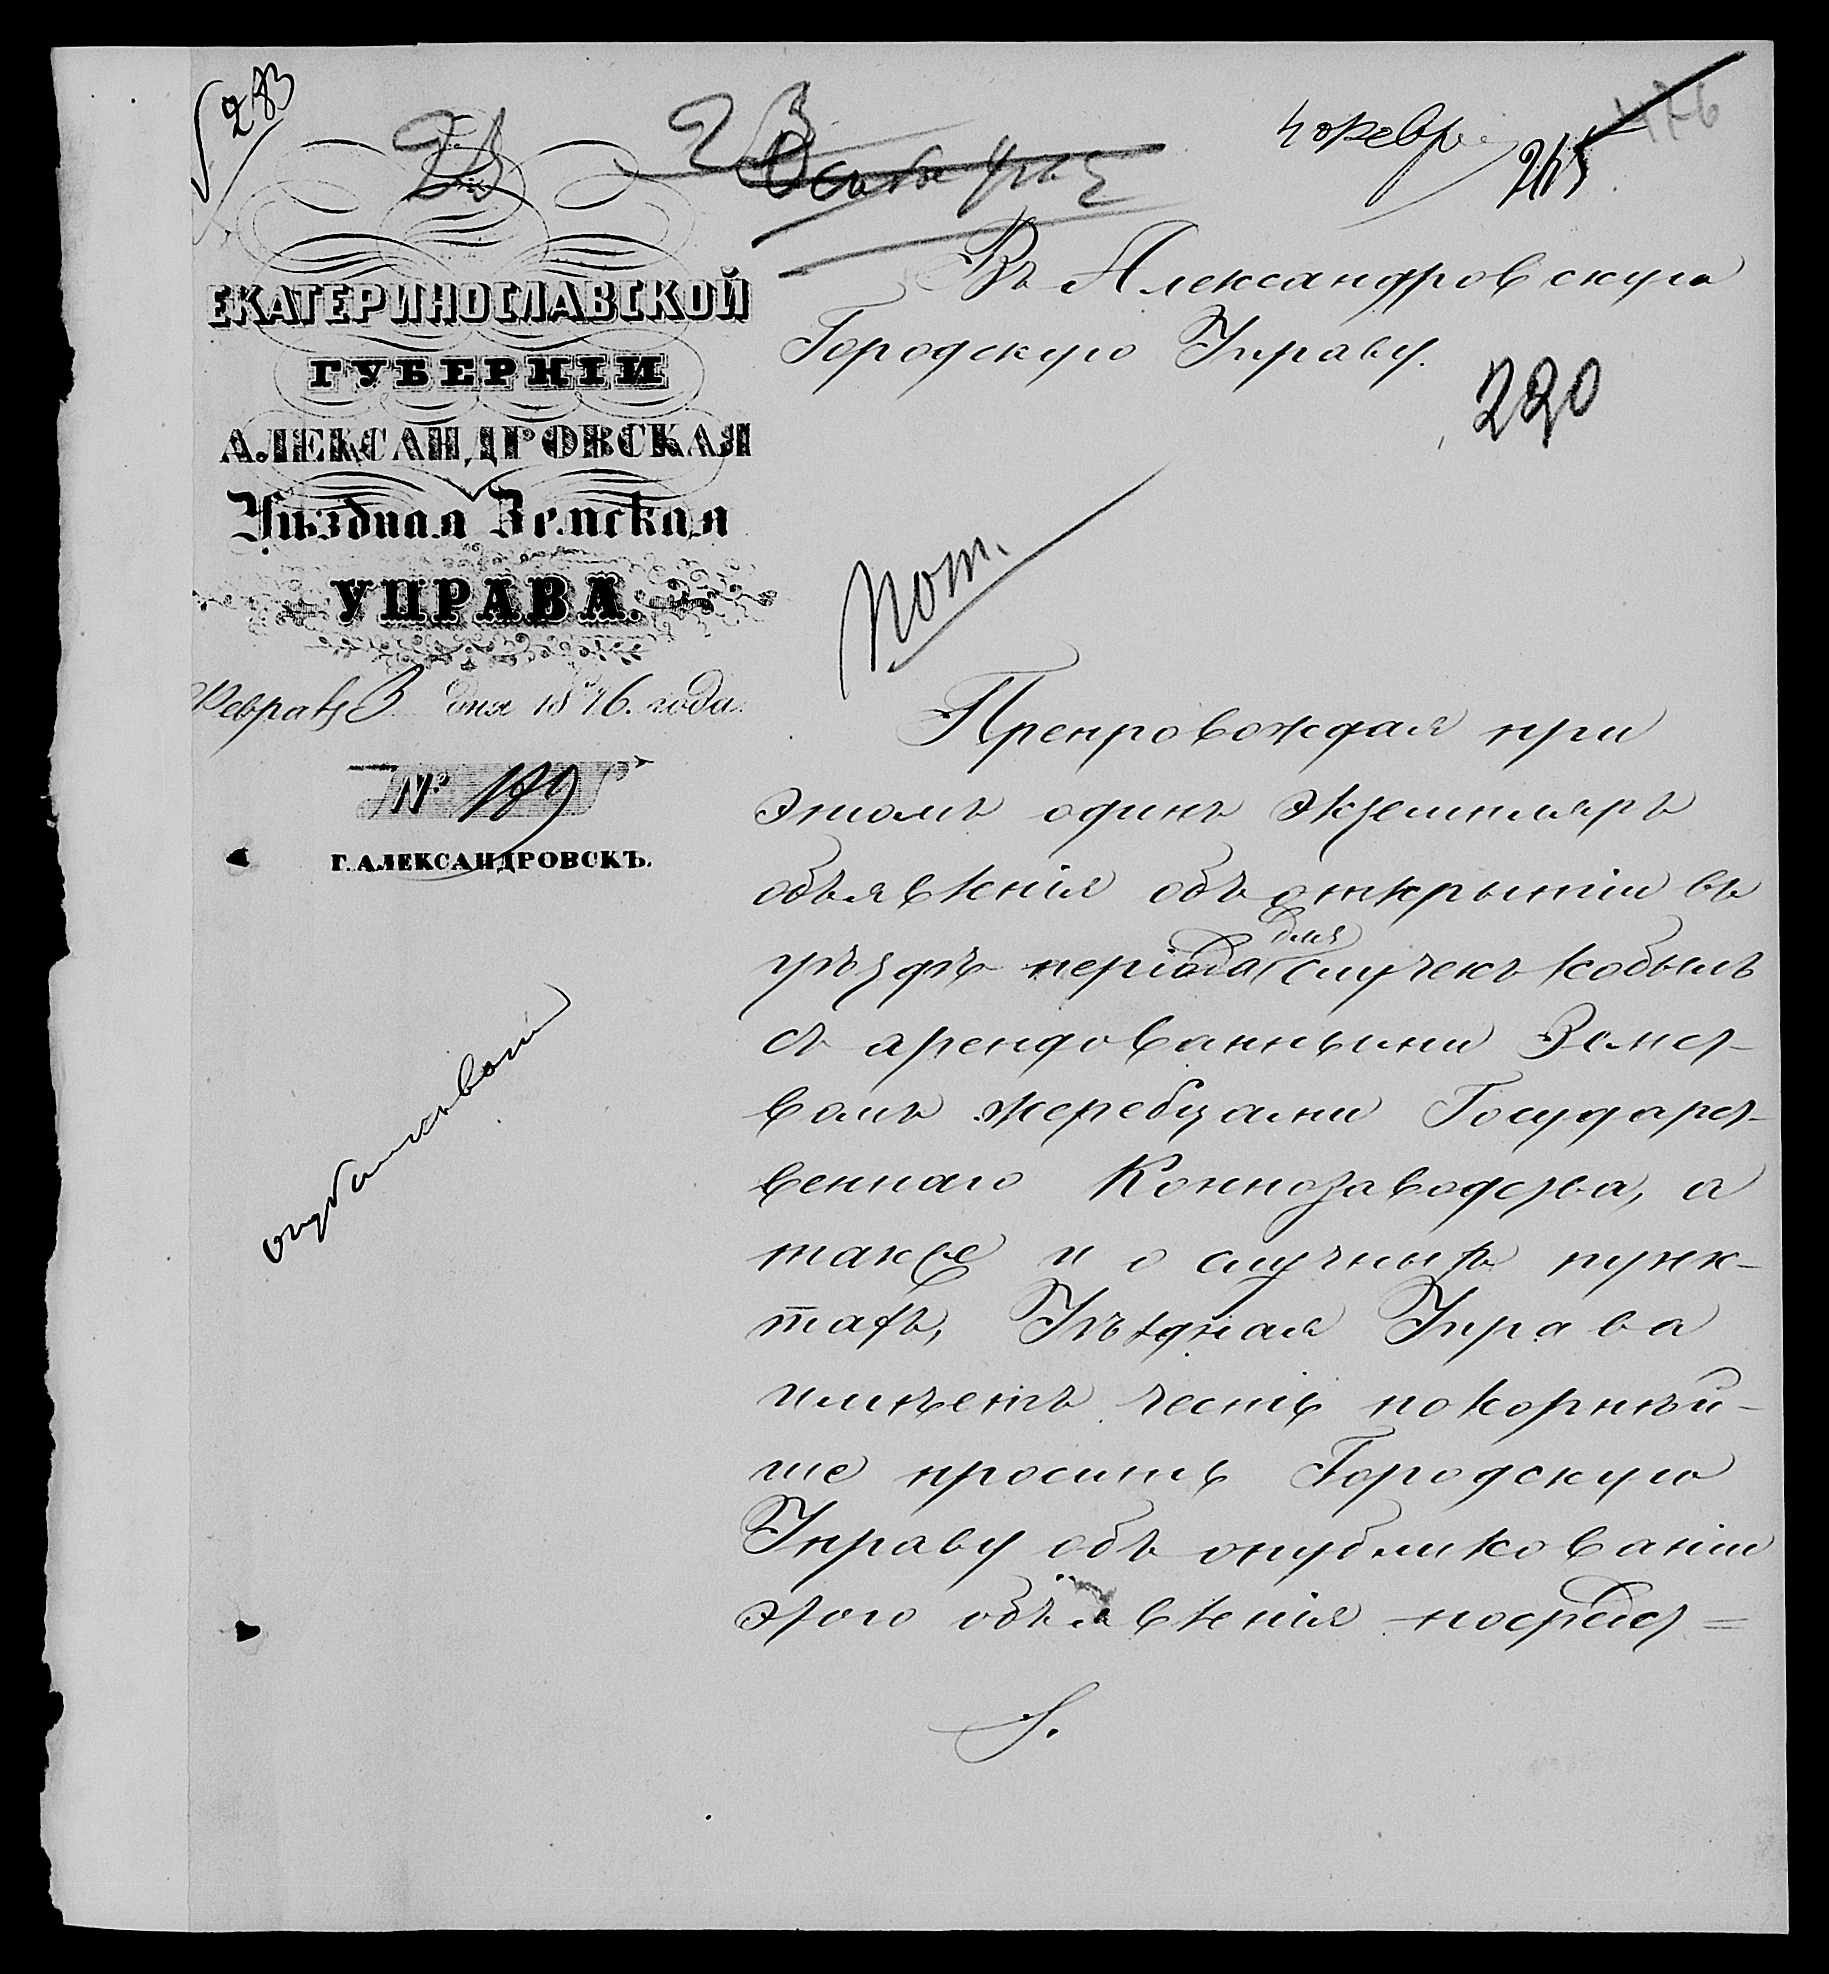 283
23
23
4 Февр.
245
176
ЕКАТЕРИНОСЛАВСКОЙ
ГУБЕРНІИ
АЛЕКСАНДРОВСКАЯ
Уѣздная Земская
УПРАВА.
Февраля 3 дня 1876. года.
№ 189
Г. АЛЕКСАНДРОВСКЪ.
Въ Александровскую
Городскую Управу.
220
Препровождая при
этомъ одинъ экземпляръ
объявленія объ открытіи въ
уѣздѣ періода для случекъ кобылъ
съ арендованными Земст-
вомъ жеребцами Государст-
веннаго Коннозаводства, а
также и о случныхъ пунк-
тахъ, Уѣздная Управа
имѣетъ честь покорнѣй-
ше просить Городскую
Управу объ опубликованіи
этого объявленія посредст=